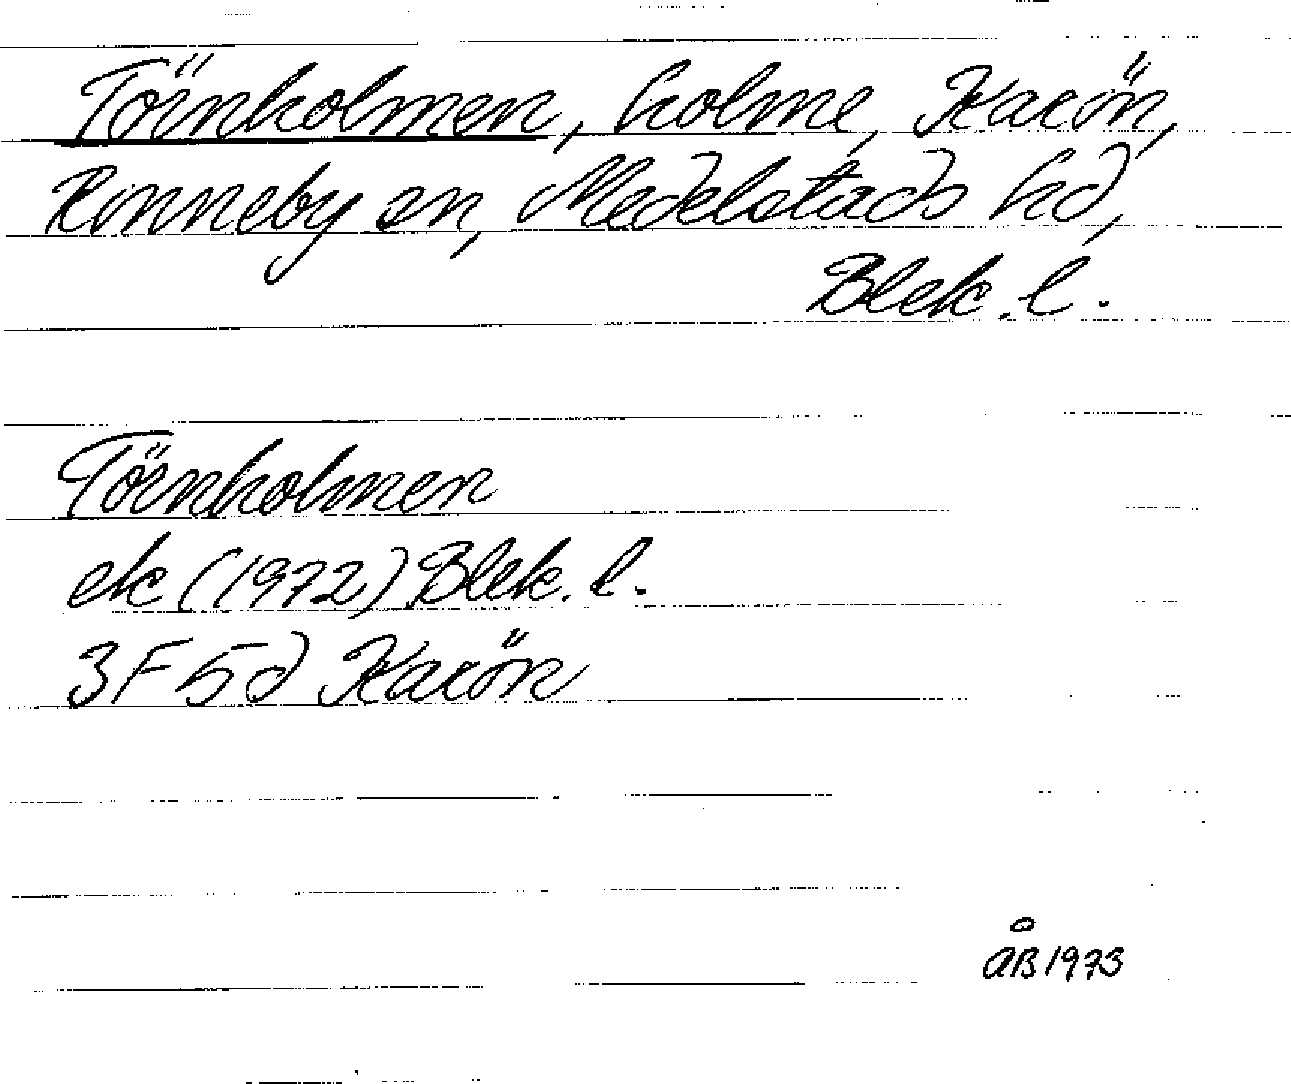 Törnholmen, holme, Karön,
Ronneby sn, Medelstads hd,
Blek. l.
Törnholmen
ek (1972) Blek. l.
3F5d Karön
ÅB 1973